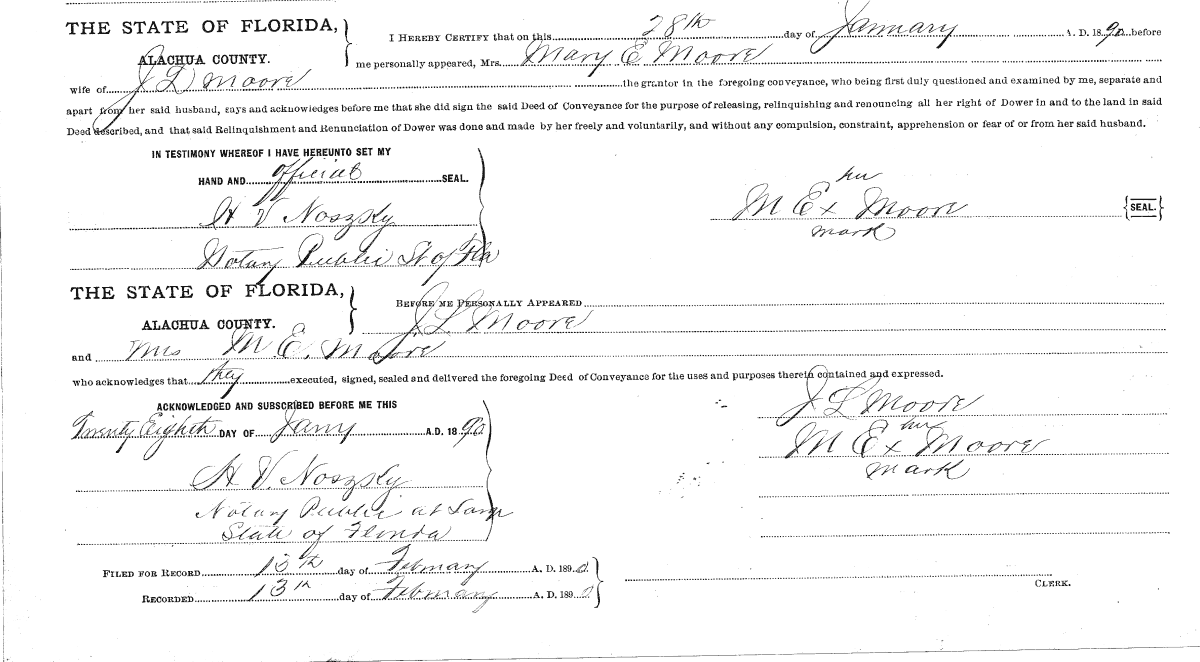 THE STATE OF FLORIDA,
ALACHUA COUNTY.
I HEREBY CERTIFY that on this 28th day of January A. D. 1890 before
me personally appeared, Mrs. Mary E Moore
wife of J L Moore the grantor in the foregoing conveyance, who being first duly questioned and examined by me, separate and
apart from her said husband, says and acknowledges before me that she did sign the said Deed of Conveyance for the purpose of releasing, relinquishing and renouncing all her right of Dower in and to the land in said
Deed described, and that said Relinquishment and Renunciation of Dower was done and made by her freely and voluntarily, and without any compulsion, constraint, apprehension or fear of or from her said husband.
IN TESTIMONY WHEREOF I HAVE HEREUNTO SET MY
HAND AND official SEAL.
H V Noszky
Notary Public St of Fla
her
M E x Moore {SEAL.}
mark
THE STATE OF FLORIDA,
ALACHUA COUNTY.
BEFORE ME PERSONALLY APPEARED
J. L Moore
and Mrs M E. Moore
who acknowledges that they executed, signed, sealed and delivered the foregoing Deed of Conveyance for the uses and purposes therein contained and expressed.
ACKNOWLEDGED AND SUBSCRIBED BEFORE ME THIS
Twenty Eighth DAY OF Jany A.D. 1890
H V. Noszky
Notary Public at Large
State of Florida
J L Moore
her
M E x Moore
mark
FILED FOR RECORD 13th day of February A. D. 1890
RECORDED 13th day of February A. D. 1890
CLERK.